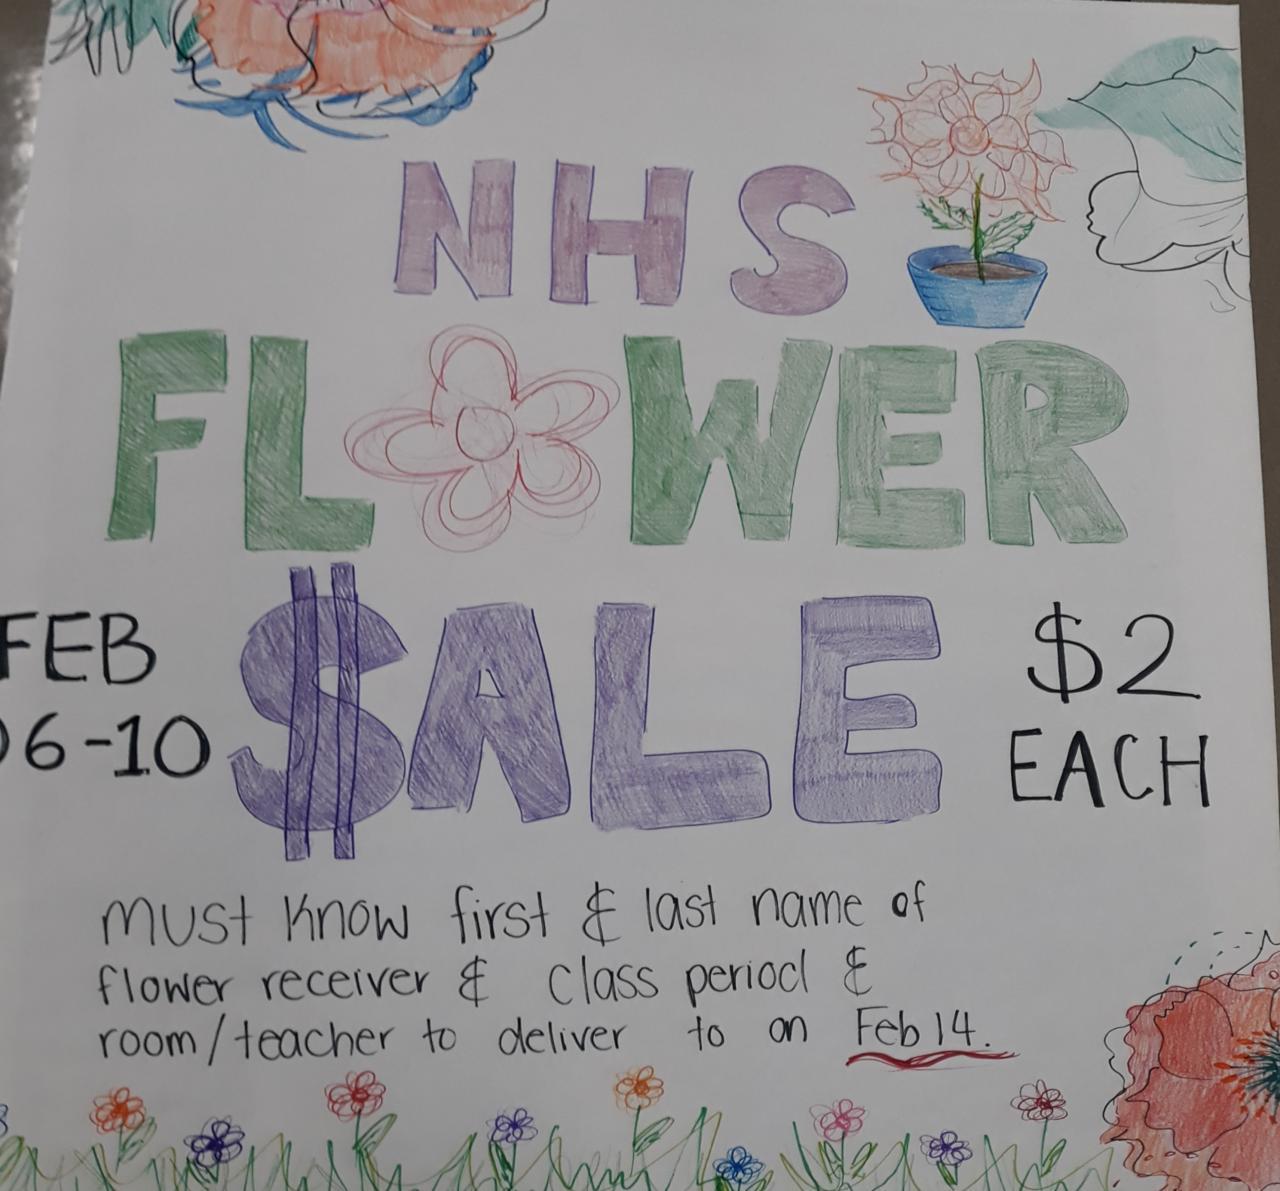 NHS
FLOWER
$ALE
FEB
06-10
$2
EACH
must know first & last name of
flower receiver & class period &
room/teacher to deliver to on Feb 14.